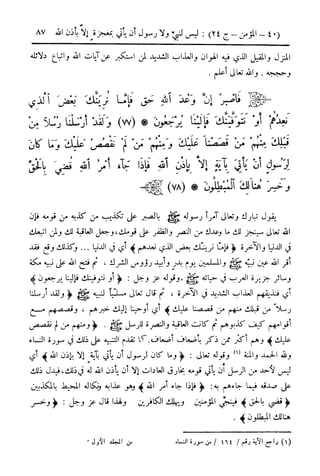 (٤٠ - المؤمن - ج ٢٤) : ليس لنبي ولا رسول أن يأتي بمعجزة إلا بأذن الله ٨٧
المنزل والمقيل الذي فيه الهوان والعذاب الشديد لمن استكبر عن آيات الله واتباع دلائله
وحججه . والله تعالى أعلم .
فَاصْبِرْ إِنَّ وَعْدَ اللَّهِ حَقٌّ فَإِمَّا نُرِيَنَّكَ بَعْضَ الَّذِي
نَعِدُهُمْ أَوْ نَتَوَفَّيَنَّكَ فَإِلَيْنَا يُرْجَعُونَ * (٧٧) وَلَقَدْ أَرْسَلْنَا رُسُلًا مِّن
قَبْلِكَ مِنْهُم مَّن قَصَصْنَا عَلَيْكَ وَمِنْهُم مَّن لَّمْ نَقْصُصْ عَلَيْكَ وَمَا كَانَ
لِرَسُولٍ أَن يَأْتِيَ بِآيَةٍ إِلَّا بِإِذْنِ اللَّهِ فَإِذَا جَاءَ أَمْرُ اللَّهِ قُضِيَ بِالْحَقِّ
وَخَسِرَ هُنَالِكَ الْمُبْطِلُونَ * (٧٨)
يقول تبارك وتعالى آمراً رسوله ﷺ بالصبر على تكذيب من كذبه من قومه فإن
الله تعالى سينجز لك ما وعدك من النصر والظفر على قومك، وجعل العاقبة لك ولمن اتبعك
في الدنيا والآخرة ﴿ فإما نرينك بعض الذي نعدهم ﴾ أي في الدنيا ... وكذلك وقع فقد
أقر الله عين نبيه ﷺ والمسلمين يوم بدر وأبيد رؤوس الشرك ، ثم فتح الله على نبيه مكة
وسائر جزيرة العرب في حياته ﷺ . وقوله عز وجل : ﴿ أو نتوفينك فإلينا يرجعون ﴾
أي فنذيقهم العذاب الشديد في الآخرة ، ثم قال تعالى مسلياً لنبيه ﷺ ﴿ ولقد أرسلنا
رسلاً من قبلك منهم من قصصنا عليك ﴾ أي أوحينا إليك خبرهم ، وقصصهم مع
أقوامهم كيف كذبوهم ثم كانت العاقبة والنصرة للرسل . ﴿ ومنهم من لم نقصص
عليك ﴾ وهم أكثر ممن ذكر بأضعاف أضعاف. كما تقدم التنبيه على ذلك في سورة النساء
ولله الحمد والمنة (١) وقوله تعالى : ﴿ وما كان لرسول أن يأتي بآية إلا بإذن الله ﴾ أي
ليس لأحد من الرسل أن يأتي قومه بخارق العادات إلا أن يأذن الله له في ذلك، فيدل ذلك
على صدقه فيما جاءهم به: ﴿ فإذا جاء أمر الله ﴾ وهو عذابه ونكاله المحيط بالمكذبين
﴿ قضي بالحق ﴾ فينجي المؤمنين ويهلك الكافرين ولهذا قال عز وجل : ﴿ وخسر
هنالك المبطلون ﴾ .
(١) راجع الآية رقم / ١٦٤ / من سورة النساء من المجلد الأول .